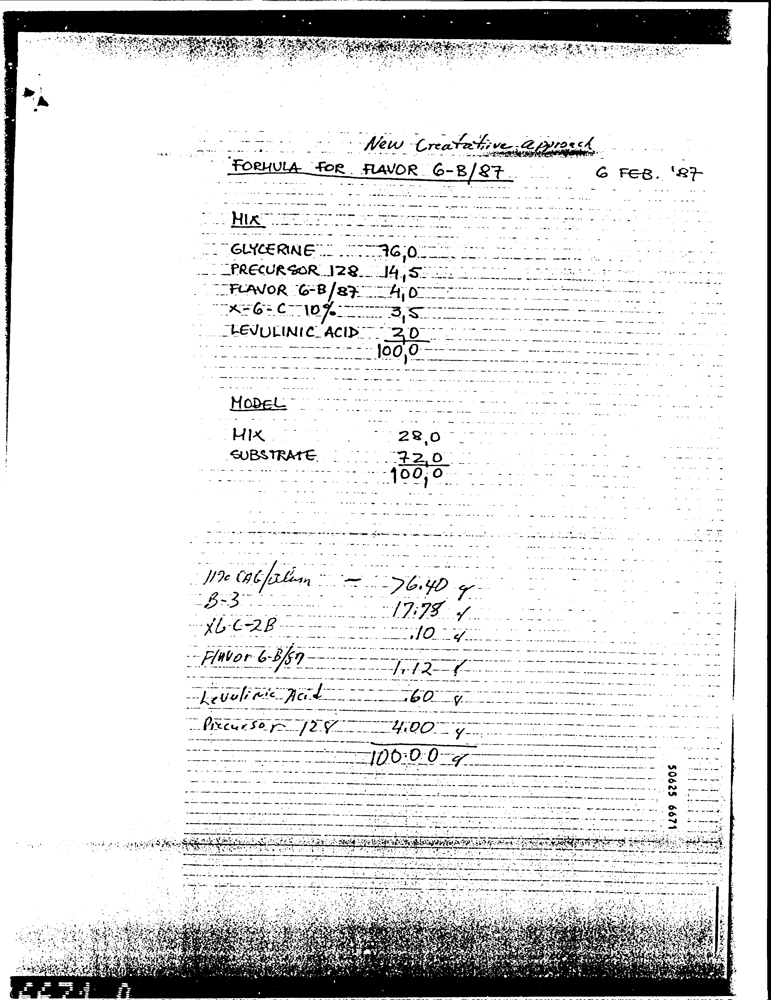 New Creatative approach
FORMULA FOR FLAVOR 6-B/87 6 FEB. '87
MIX
GLYCERINE 76,0
PRECURSOR 128 14,5
FLAVOR 6-B/87 4,0
X-6-C 10% 3,5
LEVULINIC ACID 2,0
100,0
MODEL
MIX 28,0
SUBSTRATE 72,0
100,0
— 76.40 g
B-3 17.78 g
X6-C-2B .10 g
Flavor 6-B/87 1.12 g
Levulinic Acid .60 g
Precursor 128 4.00 g
100.00 g
50625 6671
6671 0